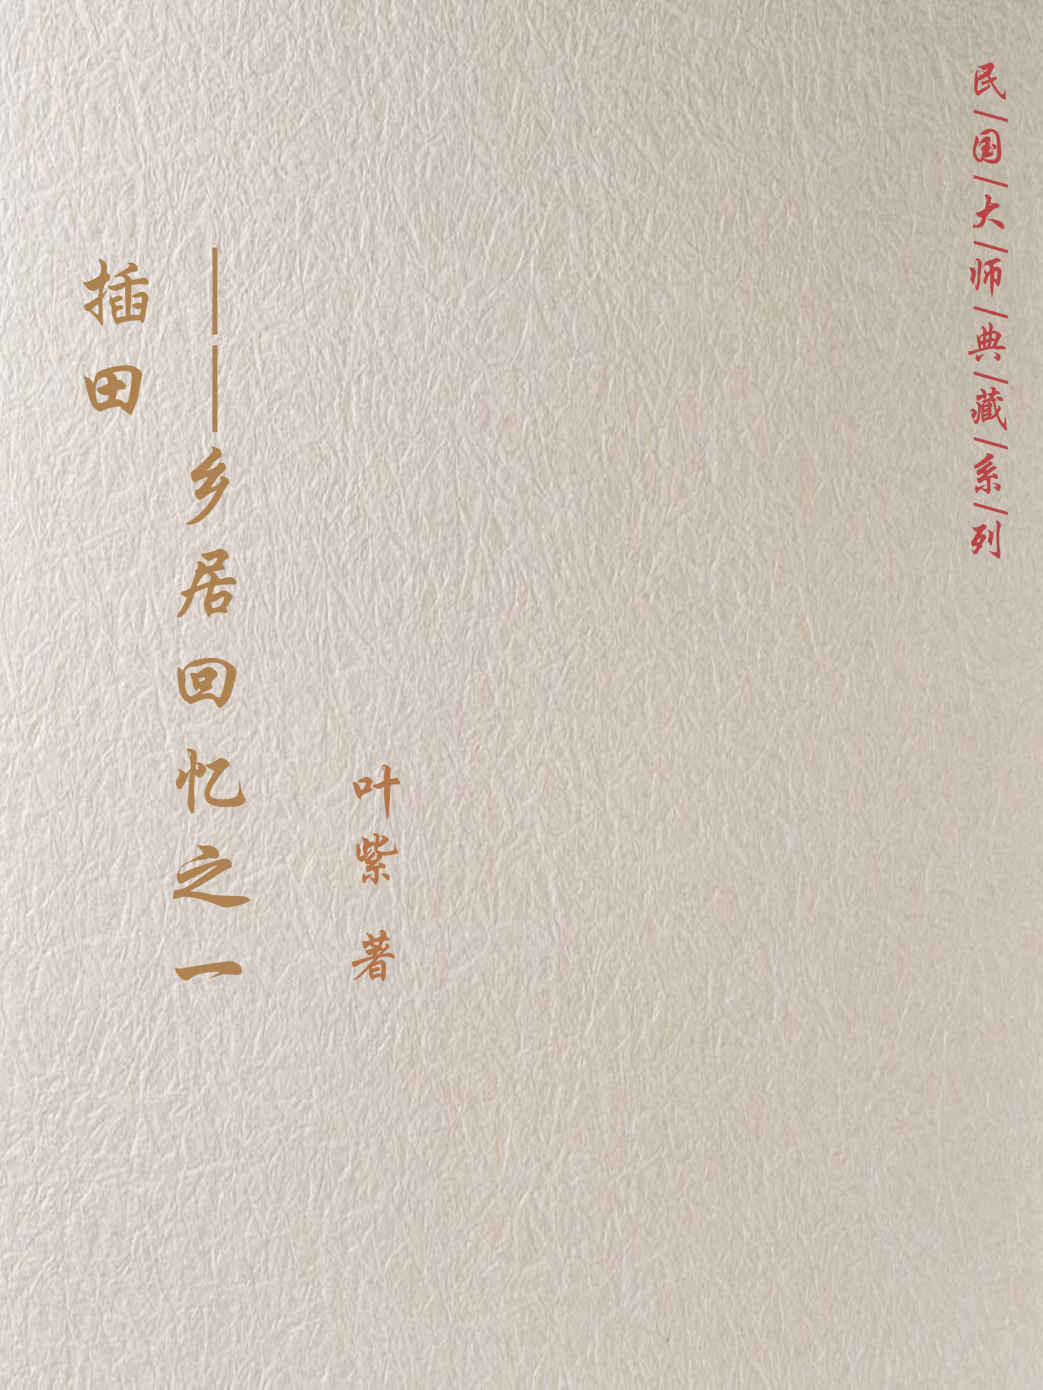 插田
——乡居回忆之一
叶紫 著
民/国/大/师/典/藏/系/列